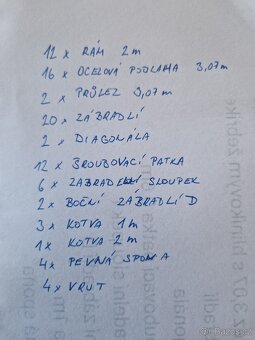 12 x RÁM 2 m
16 x OCELOVÁ PODLAHA 3,07m
2 x PRŮLEZ 3,07m
20 x ZÁBRADLÍ
2 x DIAGONÁLA
12 x ŠROUBOVACÍ PATKA
6 x ZÁBRADELNÍ SLOUPEK
2 x BOČNÍ ZÁBRADLÍ D
3 x KOTVA 1m
1 x KOTVA 2m
4x PEVNÁ SPONA
4x VRUT